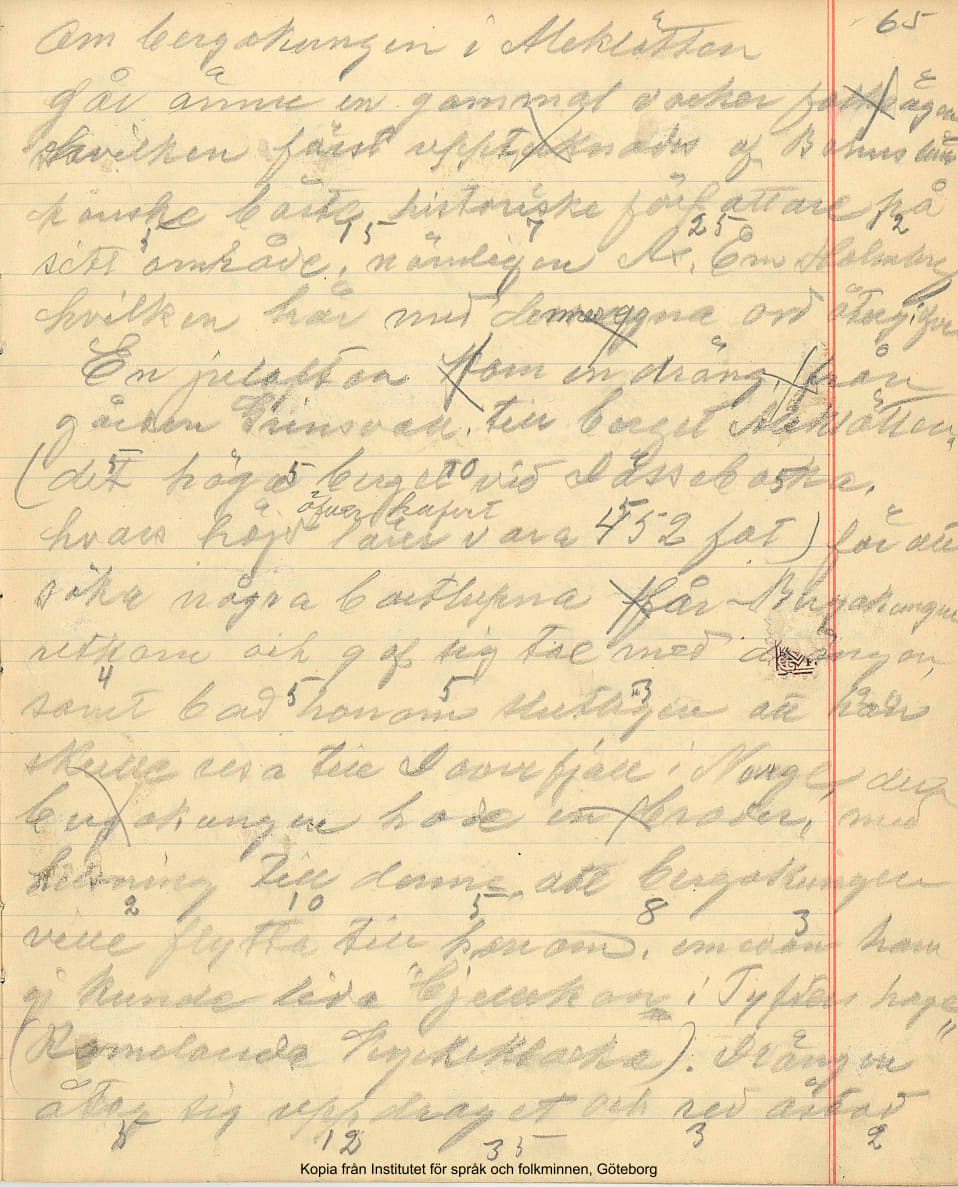 65
Om bergakungen i Aleklätten
går ännu en gammal vacker folksägen
hvilken först upptecknades af Bohusläns
kanske bäste historiske författare på
5 15 7 25 12
sitt område, nämligen Ax. Em. Holmberg
hvilken här med dennes egna ord återgifves
En julafton kom en dräng, från
gården Grinsvall, till berget Aleklätten,
(det höga berget vid Dössebacka,
5 5 10 5
öfver hafvet
hvars höjd lärer vara 452 fot) för att
söka några bortlupna får. Bergakungen
utkom och gaf sig tal med drängen,
4 5 5 3
samt bad honom slutligen att han
skulle resa till Dovrefjäll i Norge, der
bergakungen hade en broder, med
helsning till denne, att bergakungen
2 10 5 8 3
ville flytta till honom, emedan han
ej kunde lida "Bjellekon i Tyfters hage"
(Romelanda kyrkeklocka). Drängen
åtog sig uppdraget och red åstad
5 12 35 3 2
Kopia från Institutet för språk och folkminnen, Göteborg